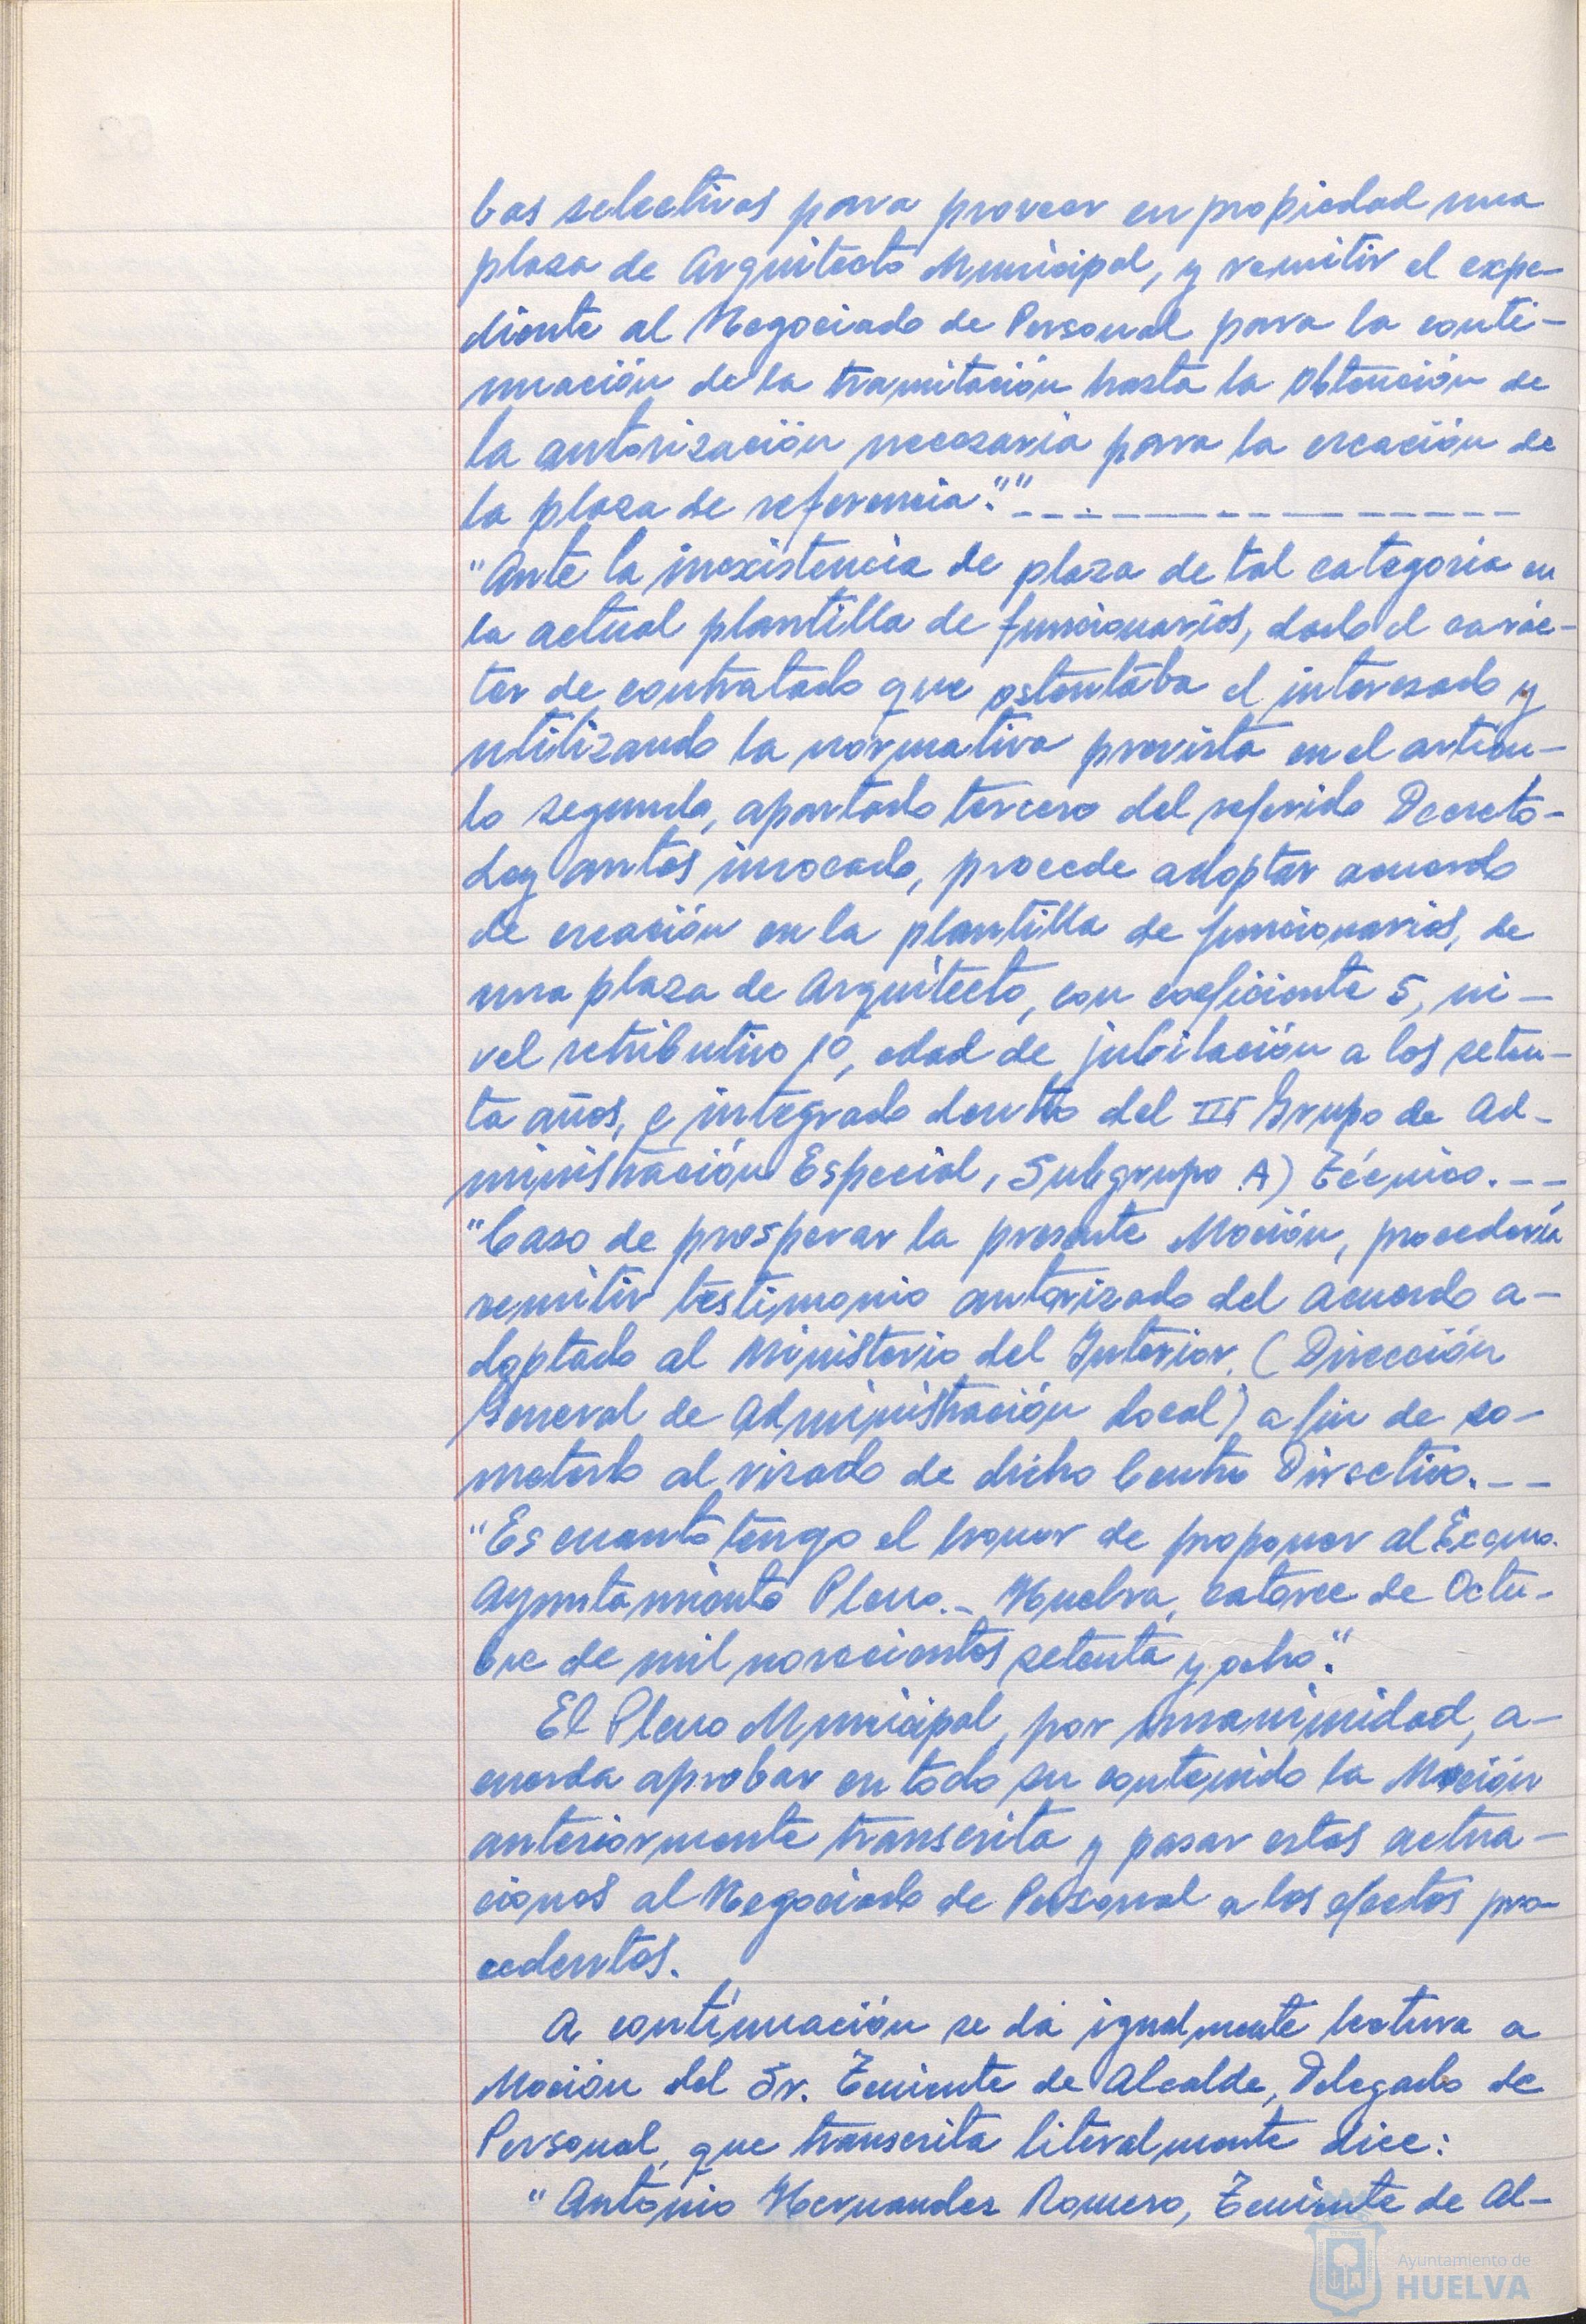 bas selectivas para proveer en propiedad una
plaza de Arquitecto Municipal, y remitir el expe-
diente al Negociado de Personal para la conti-
nuación de la tramitación hasta la obtención de
la autorización necesaria para la creación de
la plaza de referencia".""
"Ante la inexistencia de plaza de tal categoría en
la actual plantilla de funcionarios, dado el carác-
ter de contratado que ostentaba el interesado y
utilizando la normativa prevista en el artícu-
lo segundo, apartado tercero del referido Decreto-
Ley antes invocado, procede adoptar acuerdo
de creación en la plantilla de funcionarios, de
una plaza de Arquitecto, con coeficiente 5, ni-
vel retributivo 10, edad de jubilación a los seten-
ta años, e integrado dentro del III Grupo de Ad-
ministración Especial, Subgrupo A) Técnico. --
"Caso de prosperar la presente Moción, procedería
remitir testimonio autorizado del acuerdo a-
doptado al Ministerio del Interior, (Dirección
General de Administración Local) a fin de so-
meterlo al visado de dicho Centro Directivo. --
"Es cuanto tengo el honor de proponer al Excmo.
Ayuntamiento Pleno.- Huelva, catorce de Octu-
bre de mil novecientos setenta y ocho".
El Pleno Municipal, por unanimidad, a-
cuerda aprobar en todo su contenido la Moción
anteriormente transcrita y pasar estas actua-
ciones al Negociado de Personal a los efectos pro-
cedentes.
A continuación se da igualmente lectura a
Moción del Sr. Teniente de Alcalde, Delegado de
Personal, que transcrita literalmente dice:
"Antonio Hernandez Romero, Teniente de Al-
Ayuntamiento de
HUELVA